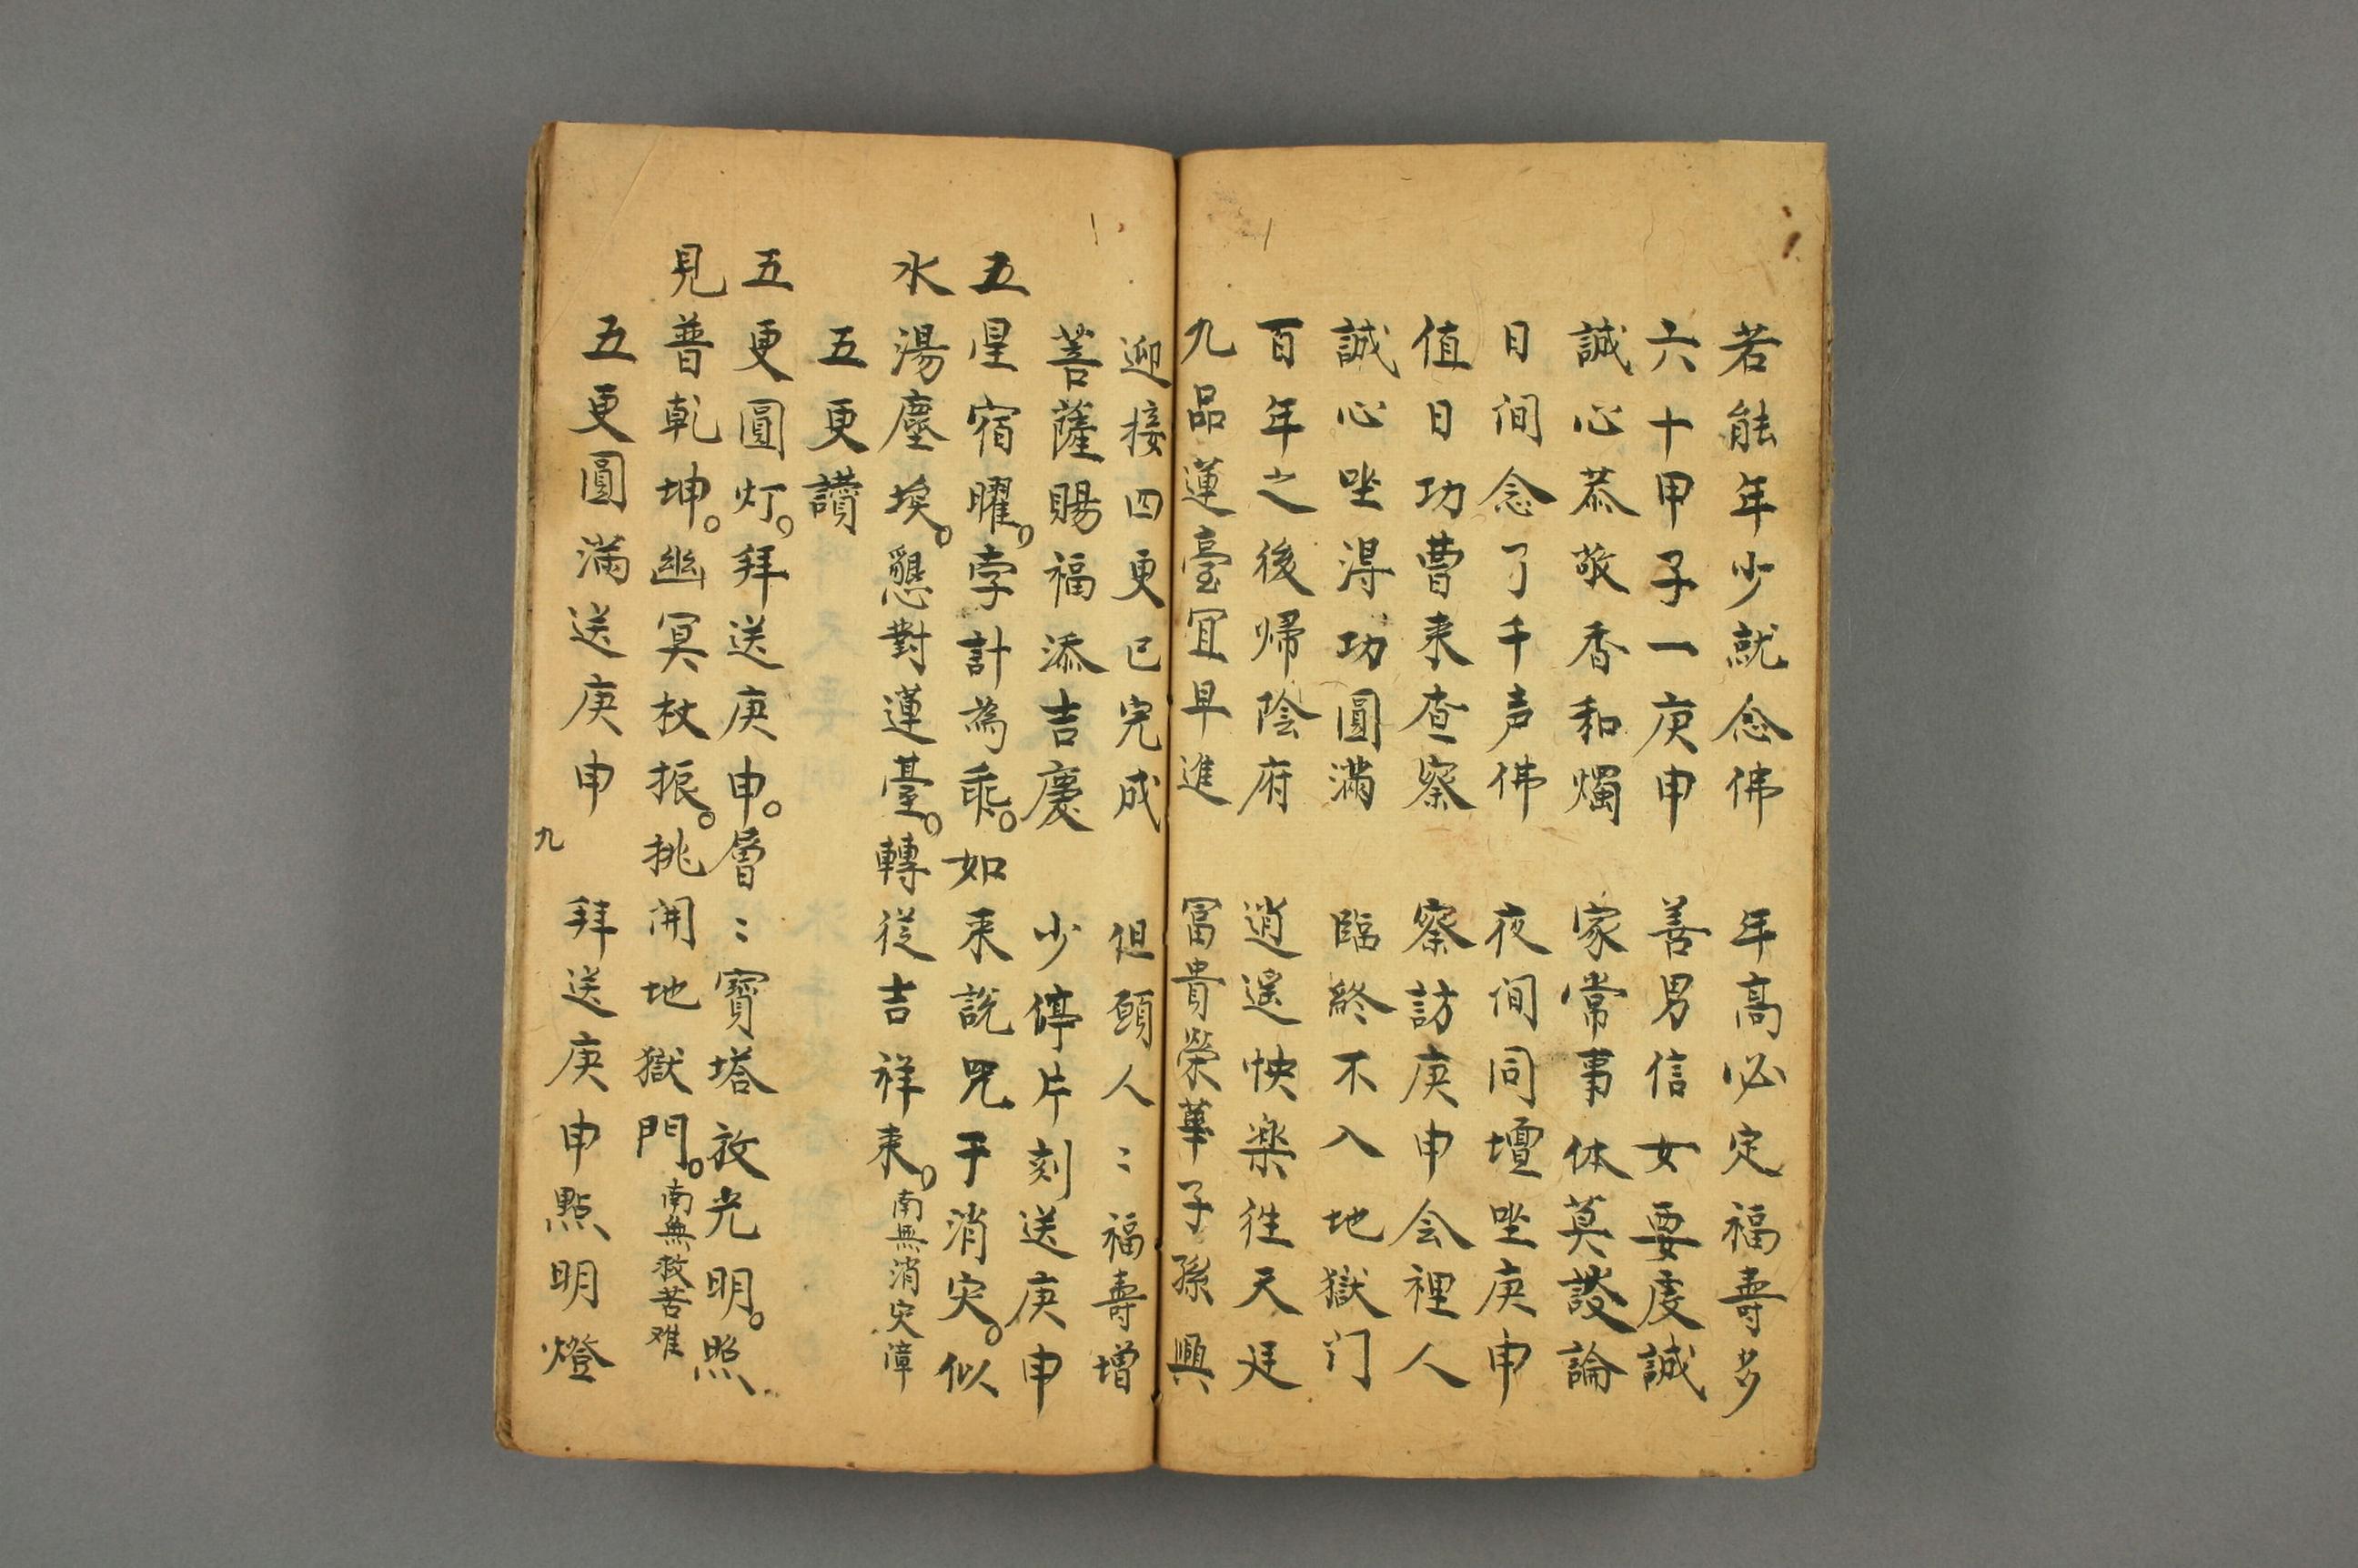 若能年少就念佛　年高必定福壽多
六十甲子一庚申　善男信女要虔誠
誠心恭敬香和燭　家常事体莫談論
日间念了千声佛　夜间同壇坐庚申
值日功曹来查察　察訪庚申会裡人
誠心坐得功圓滿　臨終不入地獄门
百年之後帰陰府　逍遥快楽徃天廷
九品蓮臺宜早進　冨貴榮華子孫興
迎接四更已完成　但願人〻福壽增
菩薩賜福添吉慶　少停片刻送庚申
五星宿曜。孛計為乖。如来説咒于消灾。似
水湯塵埃。懇對蓮臺。轉従吉祥来。南無消灾障
五更讃
五更圓灯。拜送庚申。層〻寶塔放光明。照
見普乾坤。幽冥杖振。挑開地獄門。南無救苦难
五更圓滿送庚申　拜送庚申點明燈
九